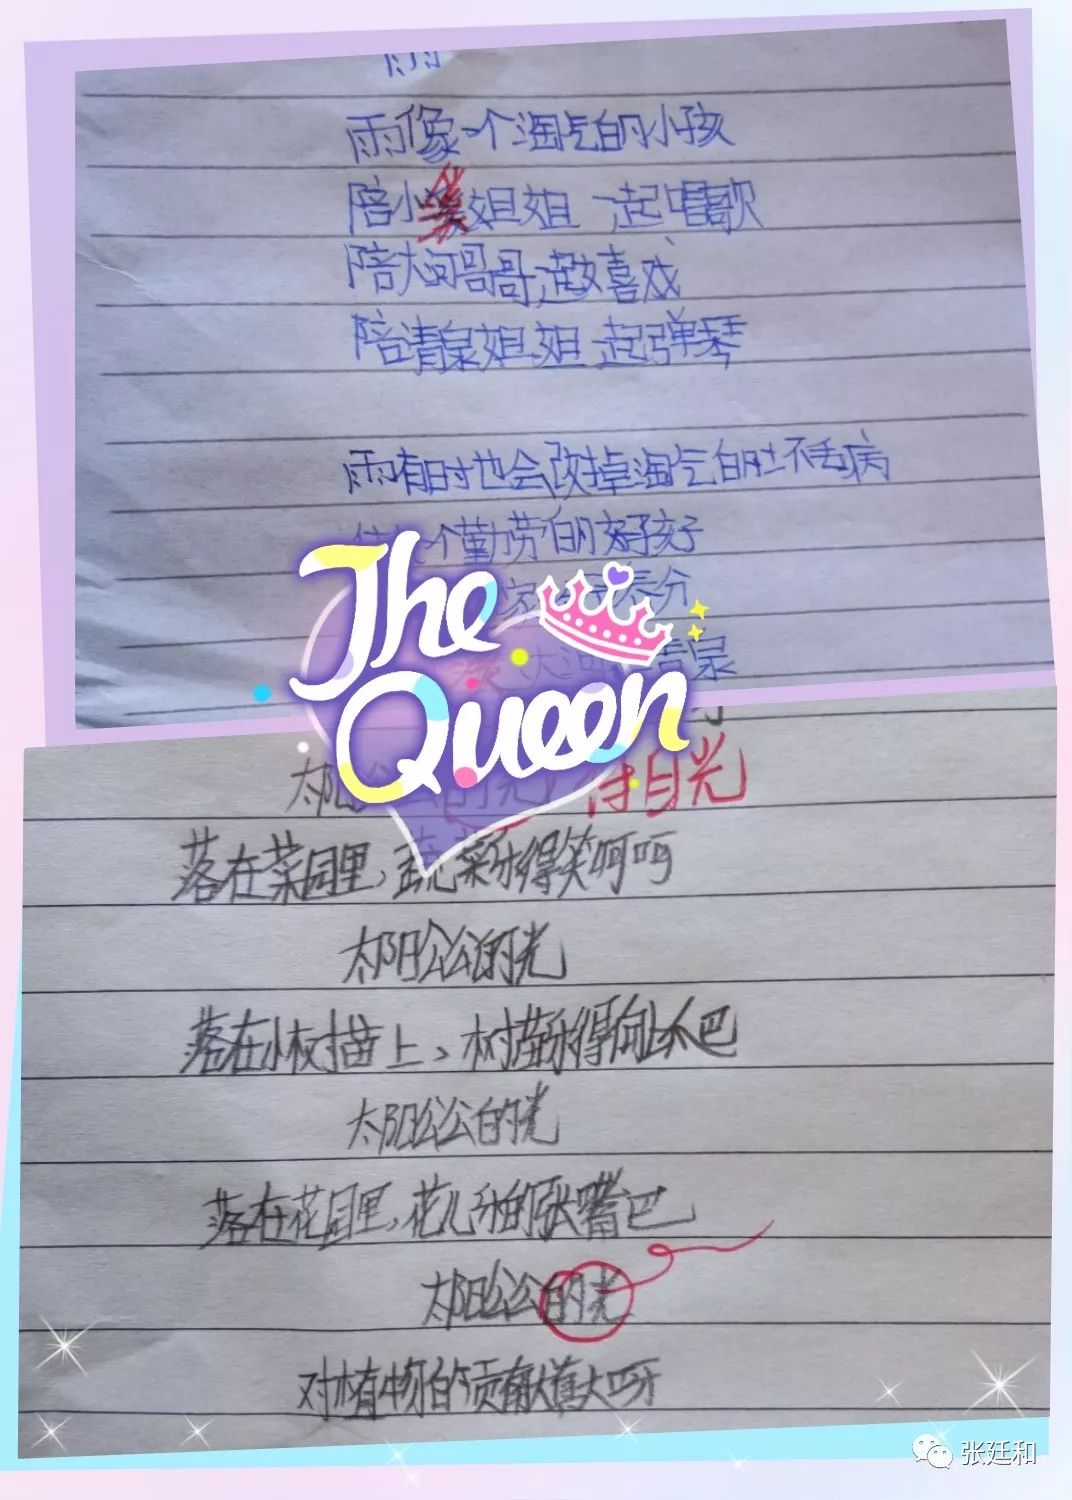 雨像一个淘气的小孩
陪小姐姐一起唱歌
陪大河哥哥一起嬉戏
陪清泉姐姐一起弹琴
雨有时也会改掉淘气的坏毛病
一个勤劳的好孩子
养分
大河 清泉
The
Queen
太阳 光
落在菜园里，蔬菜乐得笑呵呵
太阳公公的光
落在小树苗上，树苗乐得
太阳公公的光
落在花园里，花儿乐的张嘴巴
太阳公公的光
对植物的贡献 大呀
张廷和